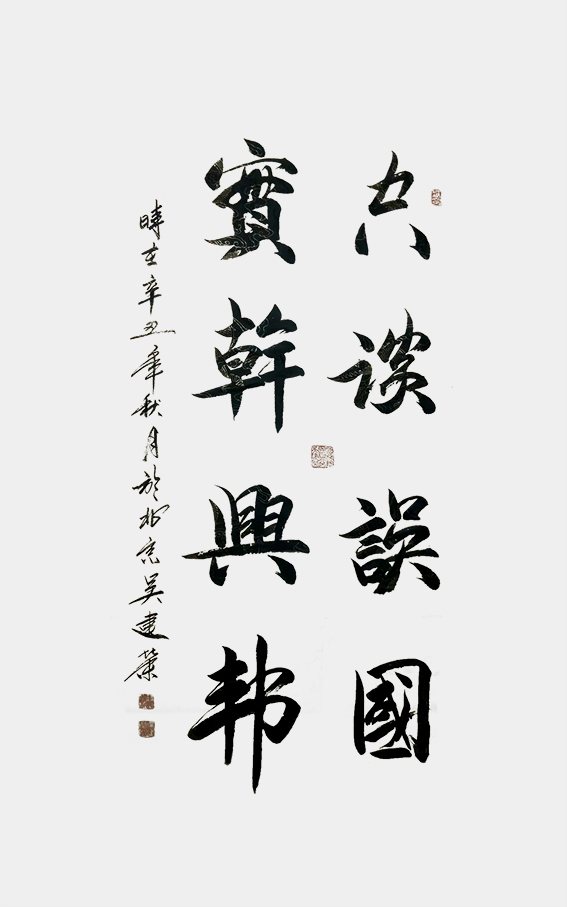 空談誤國
實幹興邦
時在辛丑年秋月於北京吴建